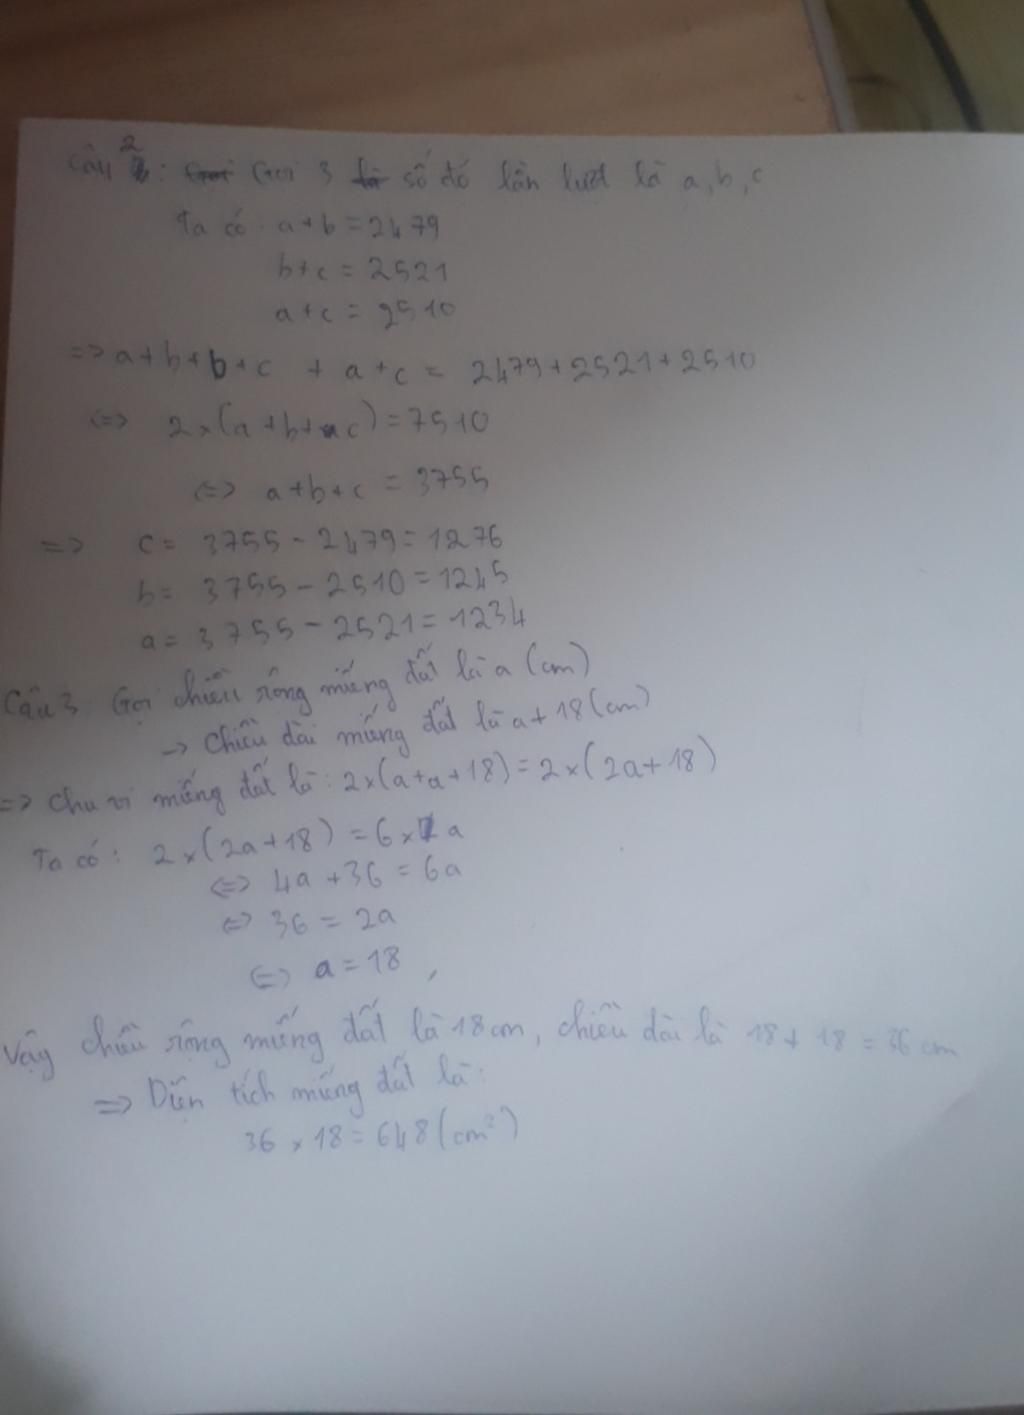 Câu 2: Gọi 3 số đó lần lượt là a, b, c
Ta có: a+b = 2479
b+c = 2521
a+c = 2510
=> a+b+b+c + a+c = 2479+2521+2510
<=> 2×(a+b+c) = 7510
<=> a+b+c = 3755
=> c = 3755 - 2479 = 1276
b = 3755 - 2510 = 1245
a = 3755 - 2521 = 1234
Câu 3: Gọi chiều rộng miếng đất là a (cm)
-> Chiều dài miếng đất là a+18 (cm)
=> Chu vi miếng đất là: 2×(a+a+18) = 2×(2a+18)
Ta có: 2×(2a+18) = 6×a
<=> 4a+36 = 6a
<=> 36 = 2a
<=> a = 18
Vậy chiều rộng miếng đất là 18 cm, chiều dài là 18+18 = 36 cm
=> Diện tích miếng đất là:
36 × 18 = 648 (cm²)